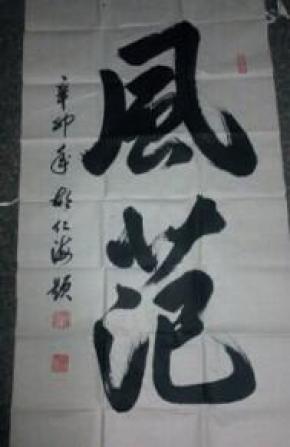 風范
辛卯年 仁海題